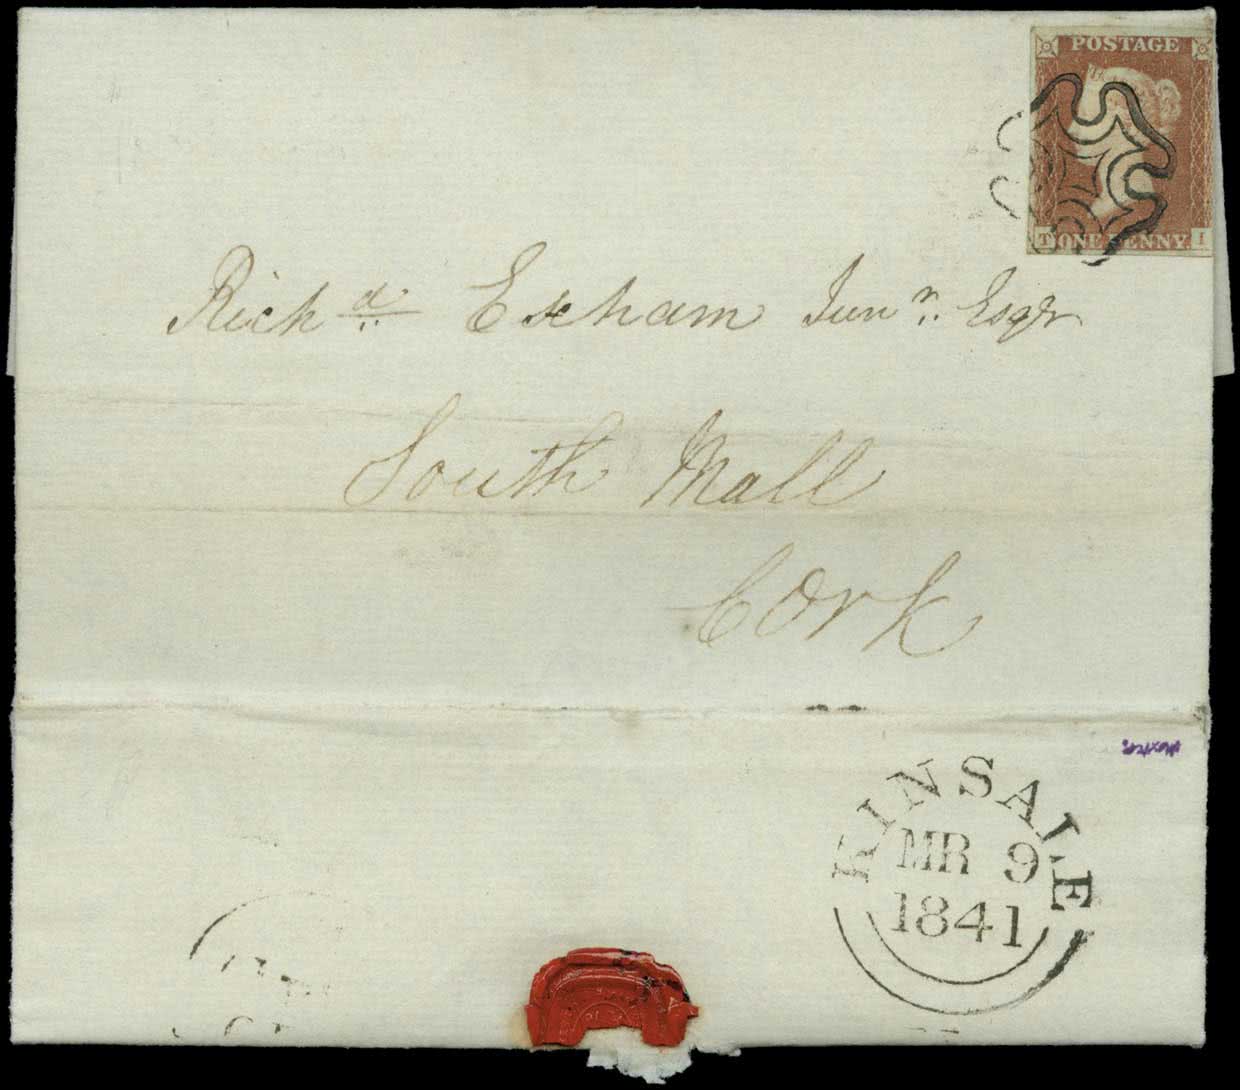 POSTAGE
T ONE PENNY. I
Richd Exham Junr. Esqr
South Mall
Cork
KINSALE
MR 9
1841